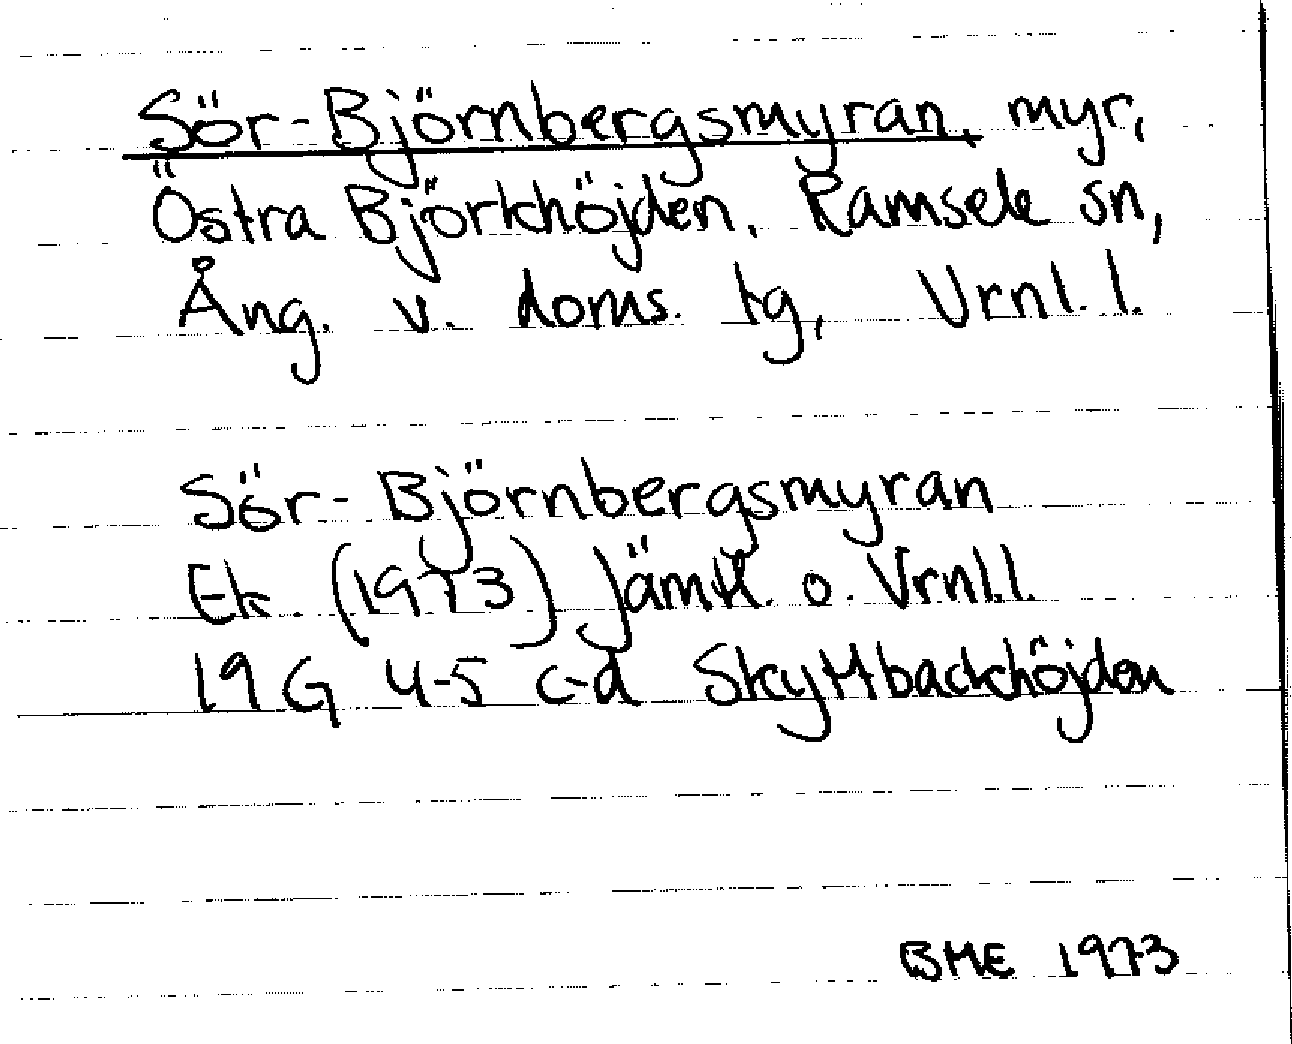 Sör-Björnbergsmyran, myr,
Östra Björkhöjden, Ramsele sn,
Ång. v. doms. tg, Vrnl. l.
Sör-Björnbergsmyran
Ek. (1973) Jämtl. o. Vrnl.l.
19 G 4-5 c-d Skyttbackhöjden
BME 1973